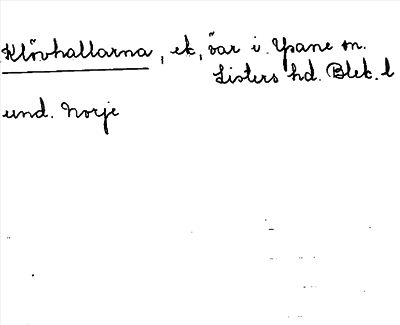 Klövhallarna, ek, öar i. Ysane sn.
Listers hd. Blek. l
und. Norje